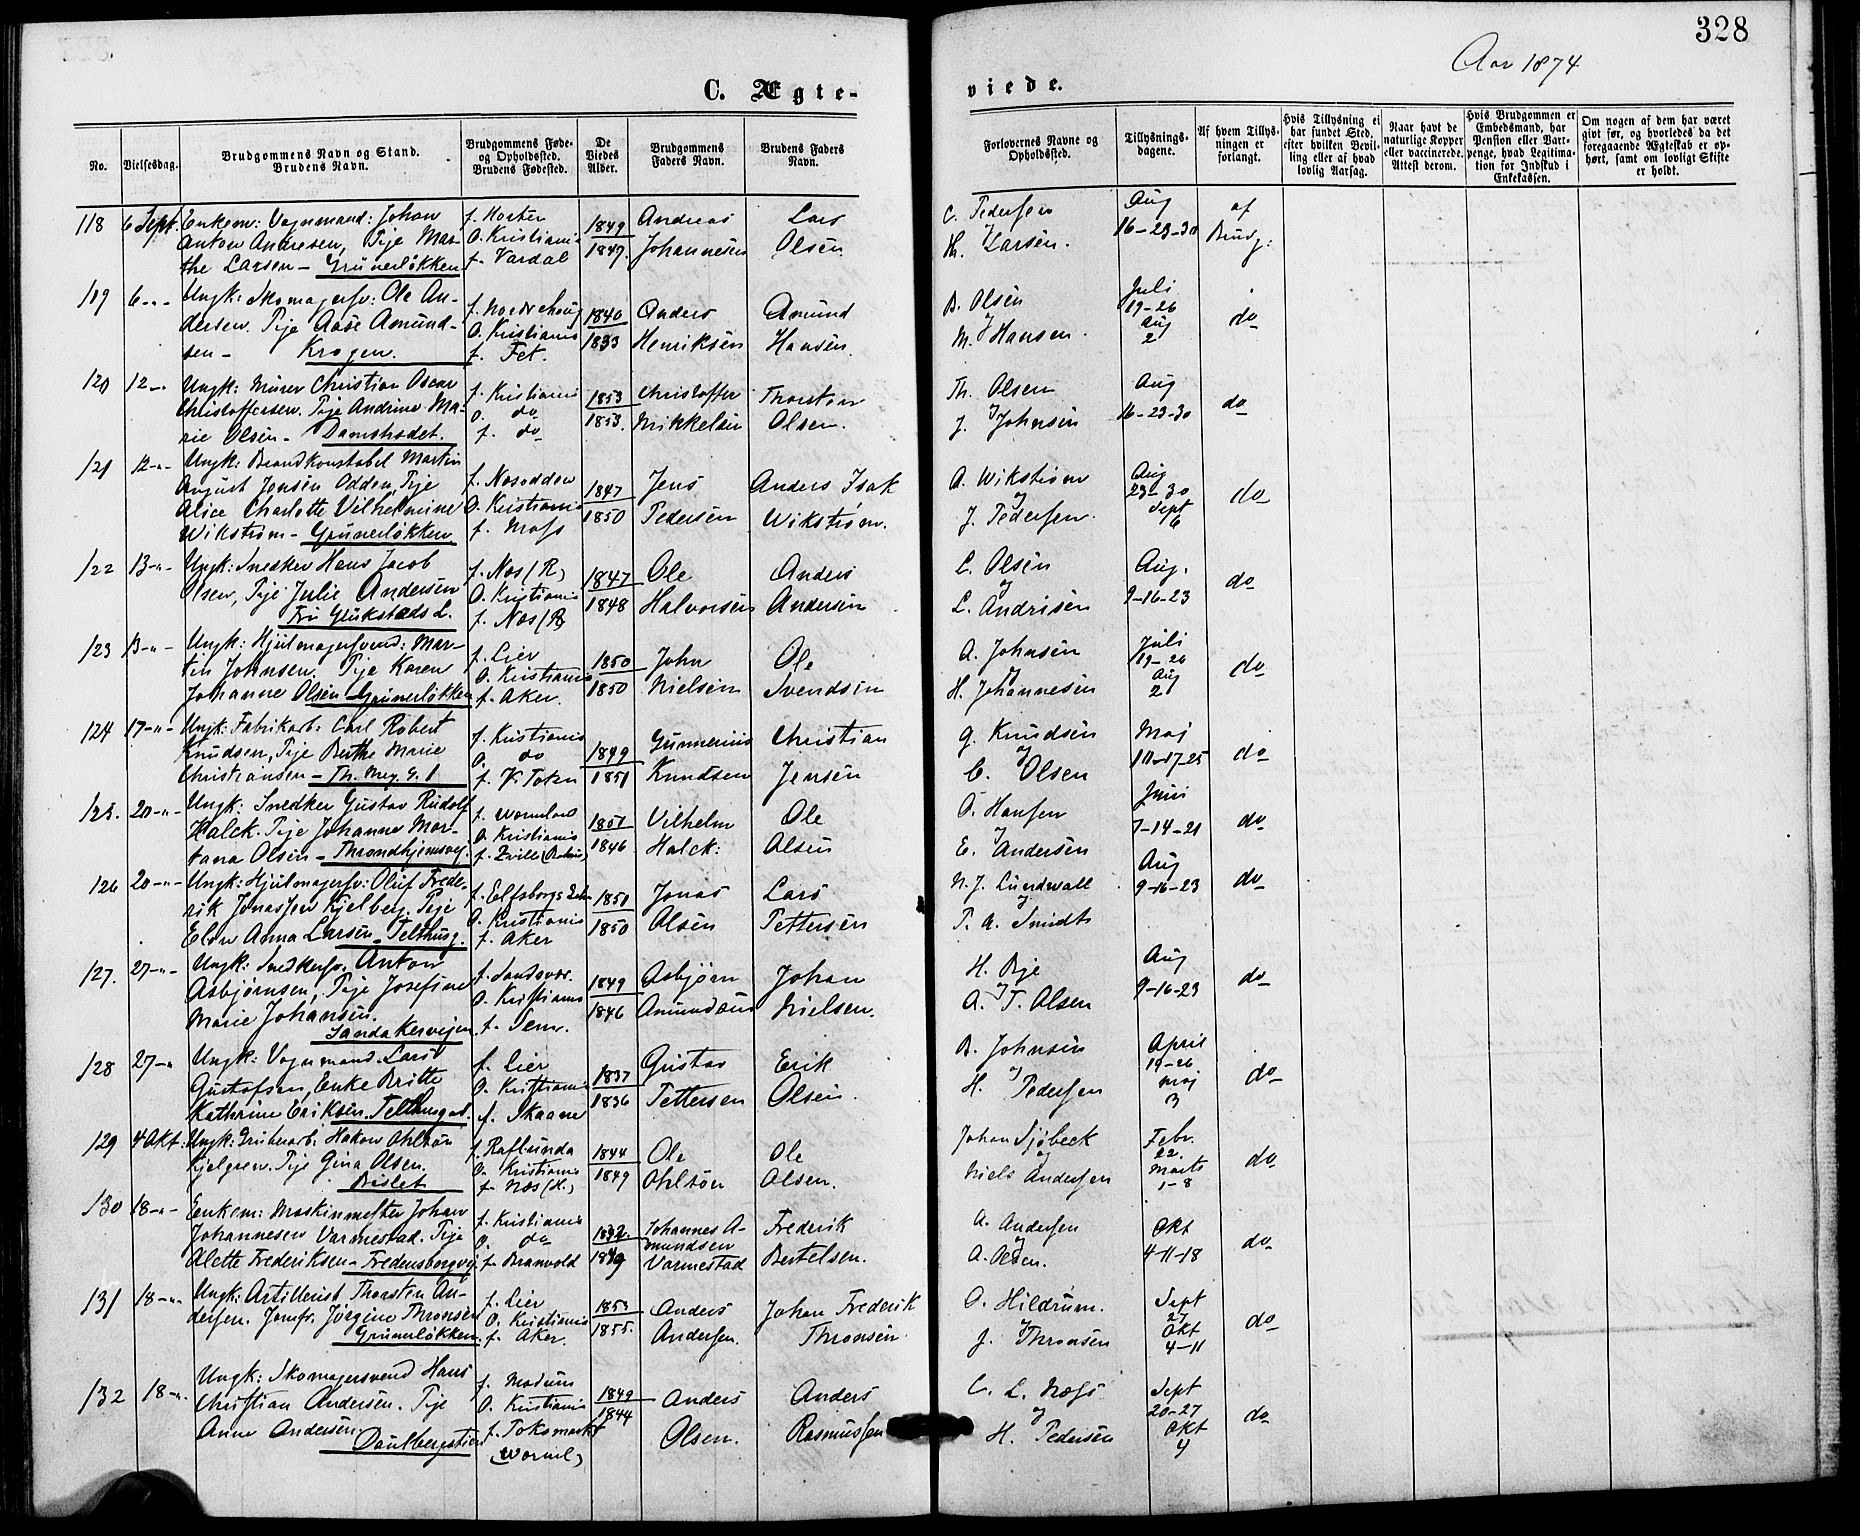 328
Aar 1874
C. Ægte-
viede.
No.
Vielsesdag.
Brudgommens Navn og Stand.
Brudens Navn.
Brudgommens Føde-
og Opholdssted.
Brudens Fødested.
De
Viedes
Alder.
Brudgommens
Faders Navn.
Brudens Faders
Navn.
Forlovernes Navne og
Opholdssted.
Tillysnings-
dagene.
Af hvem Tillys-
ningen er
forlangt.
Hvis Tillysning ei
har fundet Sted,
efter hvilken Bevil-
ling eller af hvad
lovlig Aarsag.
Naar havt de
naturlige Kopper
eller vaccinerede.
Attest derom.
Hvis Brudgommen er
Embedsmand, har
Pension eller Vart-
penge, hvad Legitima-
tion for Indskud i
Enkekassen.
Om nogen af dem har været
givt før, og hvorledes da det
foregaaende Ægteskab er op-
hørt, samt om lovligt Skifte
er holdt.
118 6 Sept. Enkem: Vognmand: Johan f. 1849 Andreas Lars C. Pedersen Aug af
Anton Andresen, Pije Mar- O. Kristiania 1847. Johannesen Olsen. H. Larsen. 16-23-30 Brudg:
the Larsen - Grünerløkken f. Vardal
119 6-"- Ungk: Skomagersv: Ole An- f. Norderhoug 1840 Anders Amund B. Olsen Juli 19-26
dersen. Pije Aase Amund- O. Kristiania 1833 Henriksen Hansen. M. Hansen. Aug 2 do
sen - Krogen. f. Fet.
120 12-"- Ungk: Murer Christian Oscar f. Kristiania 1853 Christoffer Thorsten Th. Olsen Aug
Christoffersen. Pije Andrine Ma- O. do 1853. Mikkelsen Olsen. J. Johnsen 16-23-30 do
rie Olsen - Damstrædet. f. do
121 12-"- Ungk: Brandkonstabel Martin
August Jensen Odden, Pije f. Nesodden 1847 Jens Anders Isak A. Wikstrøm Aug 23-30
Alice Charlotte Vilhelmine O. Kristiania 1850 Pedersen Wikstrøm. J. Pedersen. Sept 6 do
Wikstrøm - Grünerløkken f. Moss
122 13-"- Ungk: Snedker Hans Jacob f. Nes (R) 1847 Ole Anders L. Olsen Aug.
Olsen, Pije Julie Andersen O. Kristiania 1848 Halvorsen Andersen L. Andrisen 9-16-23 do
Fru Glükstads L. f. Nes (R)
123 13-"- Ungk: Hjulmagersvend: Mar- f. Lier 1850 John Ole A. Johnsen Juli 19-26
tin Johnsen. Pije Karen O. Kristiania 1850 Nielsen Svendsen H. Johannesen Aug 2 do
Johanne Olsen - Grünerløkken f. Aker.
124 17-"- Ungk: Fabrikarb: Carl Robert f. Kristiania 1849 Gunnerius Christian G. Knudsen Maj
Knudsen, Pije Berthe Marie O. do 1851 Knudsen Jensen C. Olsen 10-17-25 do
Christiansen - Th. Mey. G. 1 f. V. Toten
125. 20-"- Ungk: Snedker Gustav Rudolf f. Wermland 1851 Vilhelm Ole O. Hansen Juni
Halck. Pije Johanne Mar- O. Kristiania 1846 Halck: Olsen E. Andersen 7-14-21 do
tana Olsen - Throndhjemsvej. f.
126 20-"- Ungk: Hjulmagersv: Oluf Frede- f. Elfsborgs Len 1851 Jonas Lars N. J. Lundwall Aug 9-16-23 do
rik Jonassen Kjelberg. Pije O. Kristiania 1850 Olsen Pettersen P. A. Smidt
Elen Anna Larsen - Telthusg. f. Aker
127. 27-"- Ungk: Snedkersv. Anton f. Sandsvær. 1849 Asbjørn Johan H. Bye Aug
Asbjørnsen, Pije Josefine O. Kristiania 1846 Amundsen Nielsen. A. T. Olsen 9-16-23 do
Marie Johansen. f. Sem.
Sandakervejen
128 27-"- Ungk: Vognmand. Lars f. Lier 1837 Gustav Erik B. Johnsen April 19-26
Gustafsen, Enke Britte O. Kristiania 1836 Pettersen Olsen. H. Pedersen Maj 3 do
Kathrine Eriksen. Telthusgad. f. Skaane
129 4 Okt: Ungk: Grubearb. Hakon Ohlson f. Raflunda 1844 Ole Ole Johan Sjøbeck Febr. 22.
Kjelgren. Pije Gina Olsen. O. Kristiania 1849 Ohlson Olsen. Niels Andersen Marts 1-8 do
Bislet f. Næs (H.)
130 18-"- Enkem: Maskinmester Johan f. Kristiania 1832. Johannes A- Frederik A. Andersen Okt
Johannesen Varmestad. Pije O. do 1849 mundsen Bertelsen. A. Olsen. 4-11-18 do
Alette Frederiksen - Fredensborgvej f. Branvold Varmestad
131 18-"- Ungk: Artillerist Thorsten An- f. Lier 1853 Anders Johan Frederik O. Hildrum. Sept 27
dersen. Jomfr. Jørgine Thronsen O. Kristiania 1855. Andersen. Thronsen J. Thronsen Okt 4-11 do
Grünerløkken. f. Aker.
132 18-"- Ungk: Skomagersvend Hans f. Modum 1849 Anders Anders C. L. Næss Sept 20-27
Christian Andersen. Pije O. Kristiania 1844 Olsen. Rasmussen H. Pedersen Okt 4 do
Anne Andersen. f. Toksmarkt
Daulbergstien (Worml.)